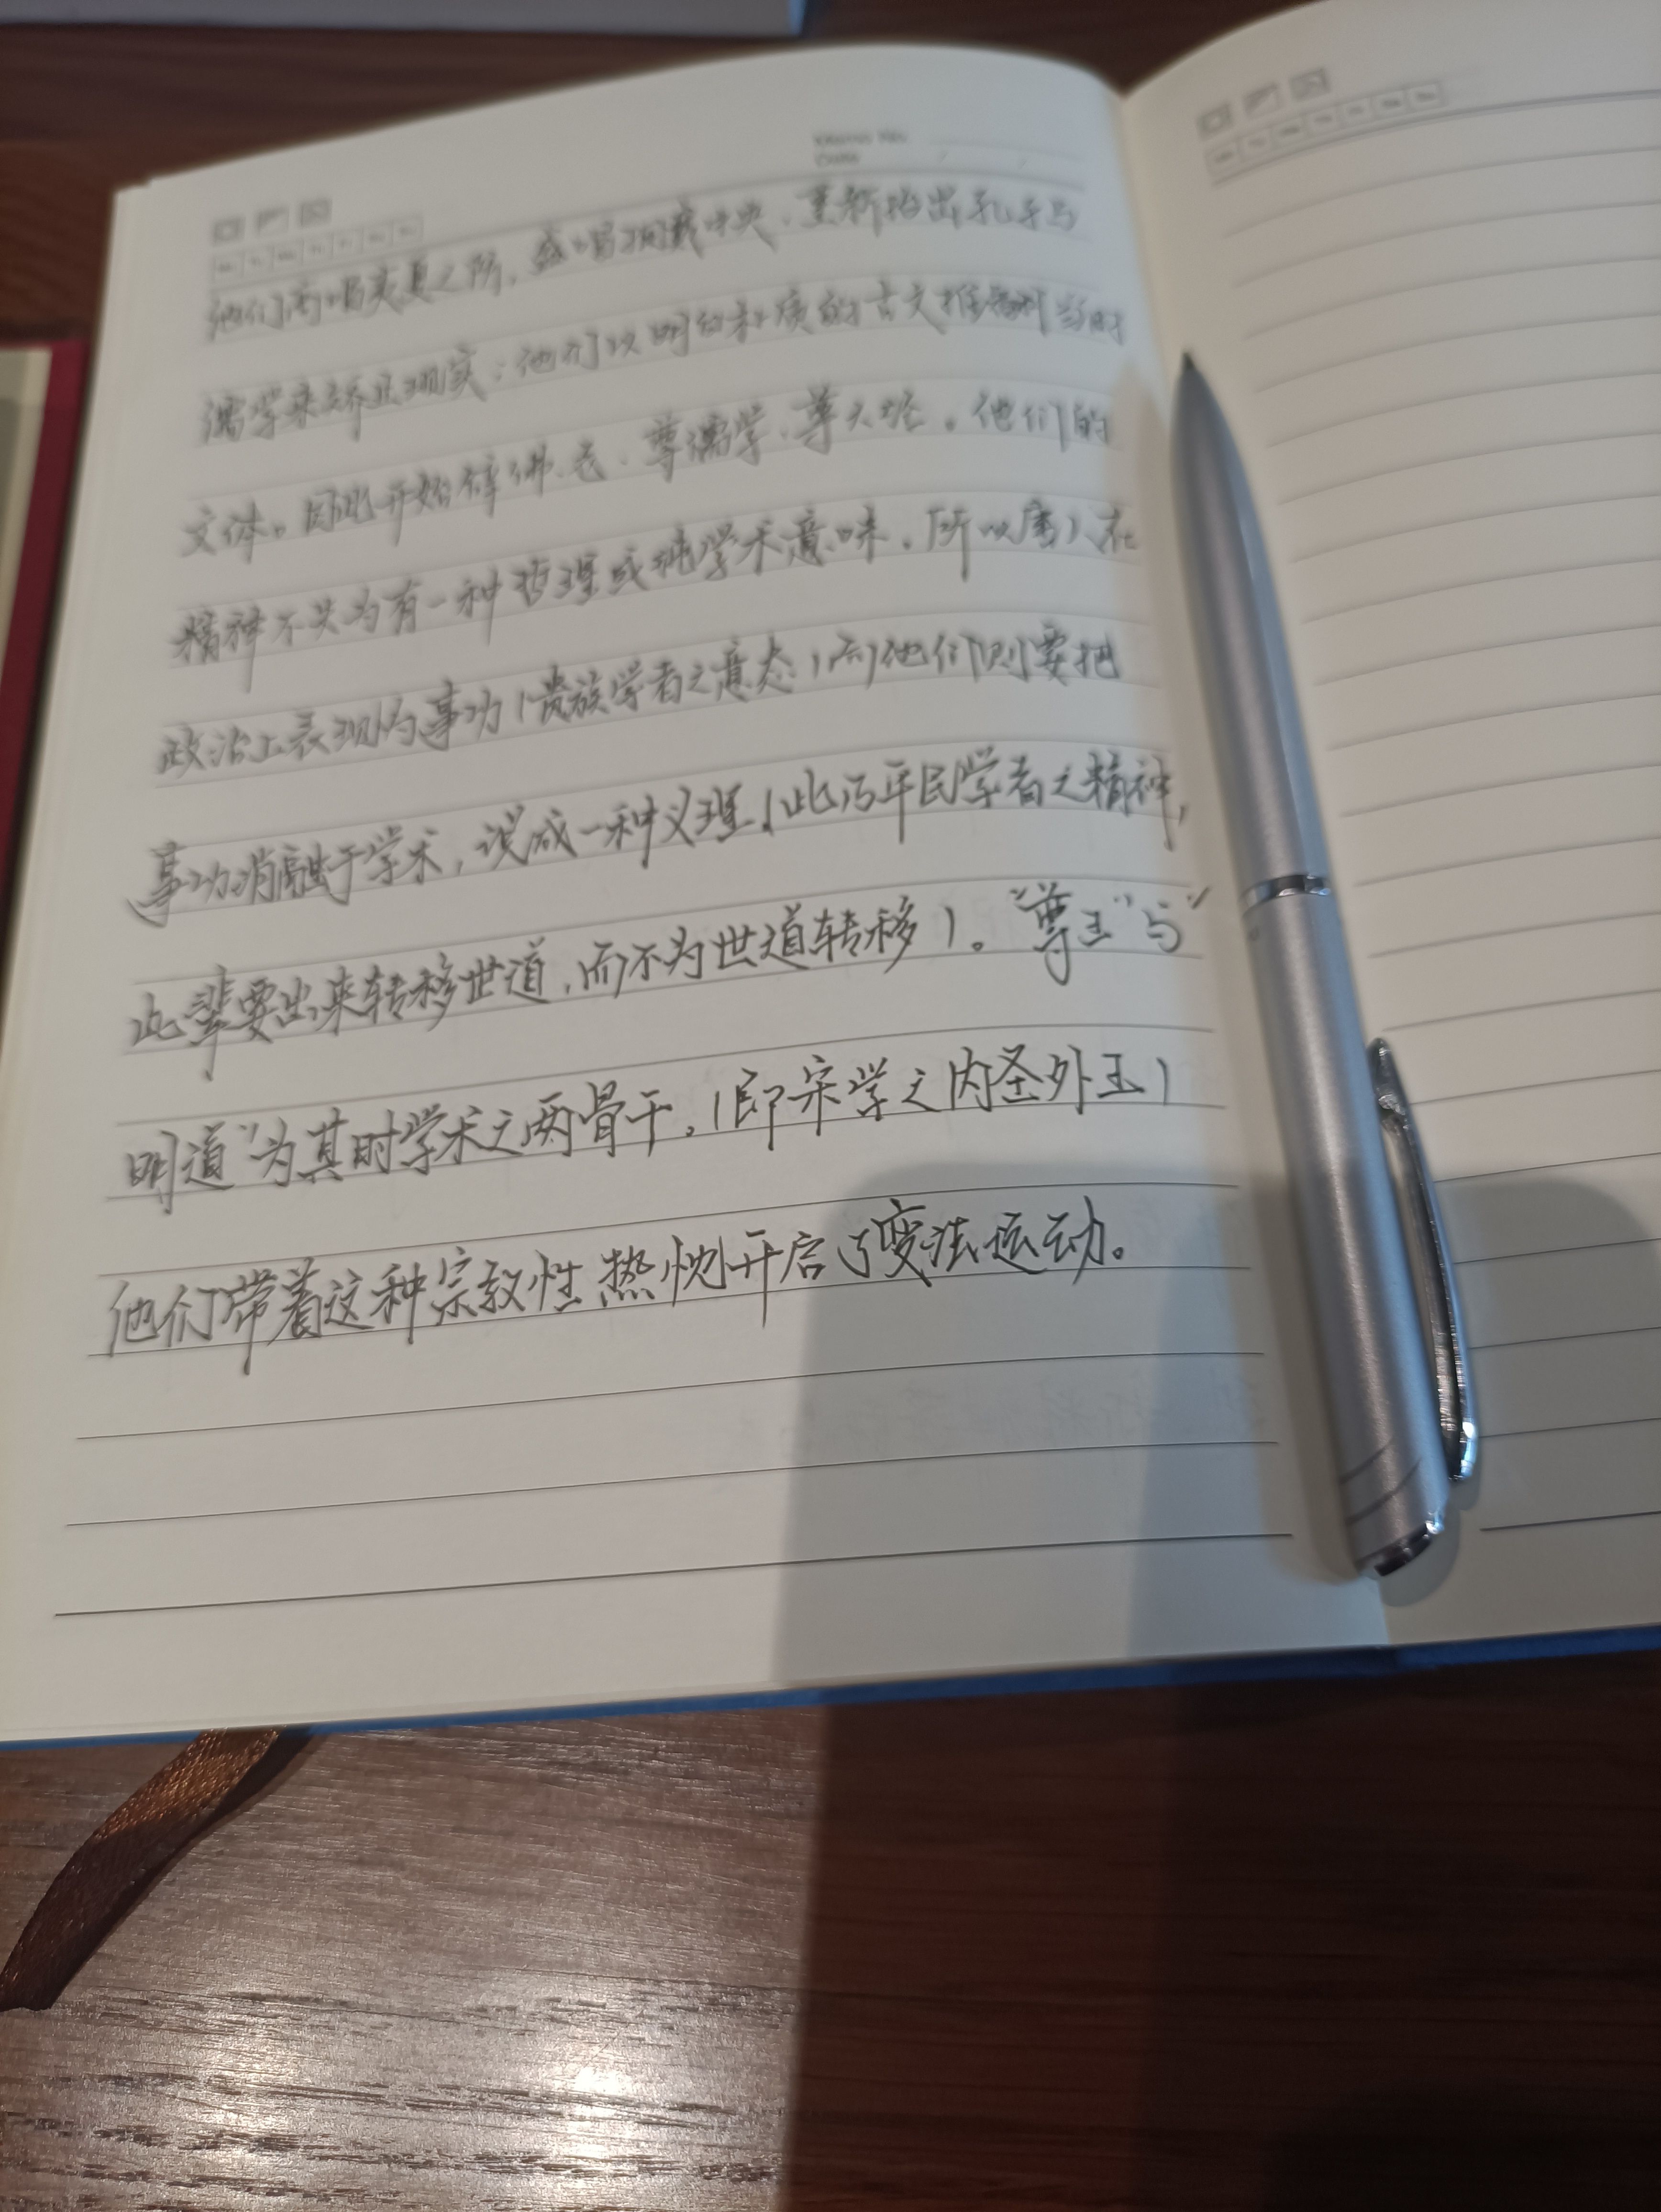 Memo No.
Date / /
他们高唱夷夏之防，盛唱拥戴中央，重新抬出孔子与
儒学来矫正现实；他们以明白朴质的古文推翻当时
文体。因此开始辟佛、老，尊儒学，尊六经。他们的
精神不失为有一种哲理或纯学术意味，所以唐人在
政治上表现为事功（贵族学者之意态），而他们则要把
事功消融于学术，说成一种义理（此乃平民学者之精神，
此辈要出来转移世道，而不为世道转移）。“尊王”与“
明道”为其时学术之两骨干。（即宋学之内圣外王）
他们带着这种宗教性热忱开启了变法运动。